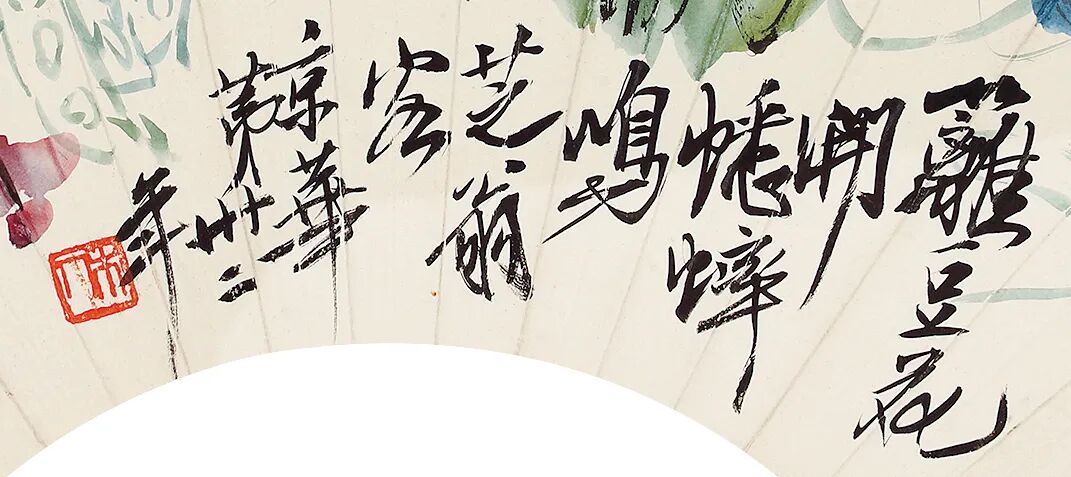 籬豆花
開
蟋蟀
鳴
芝翁
客
京華
第卅二
年